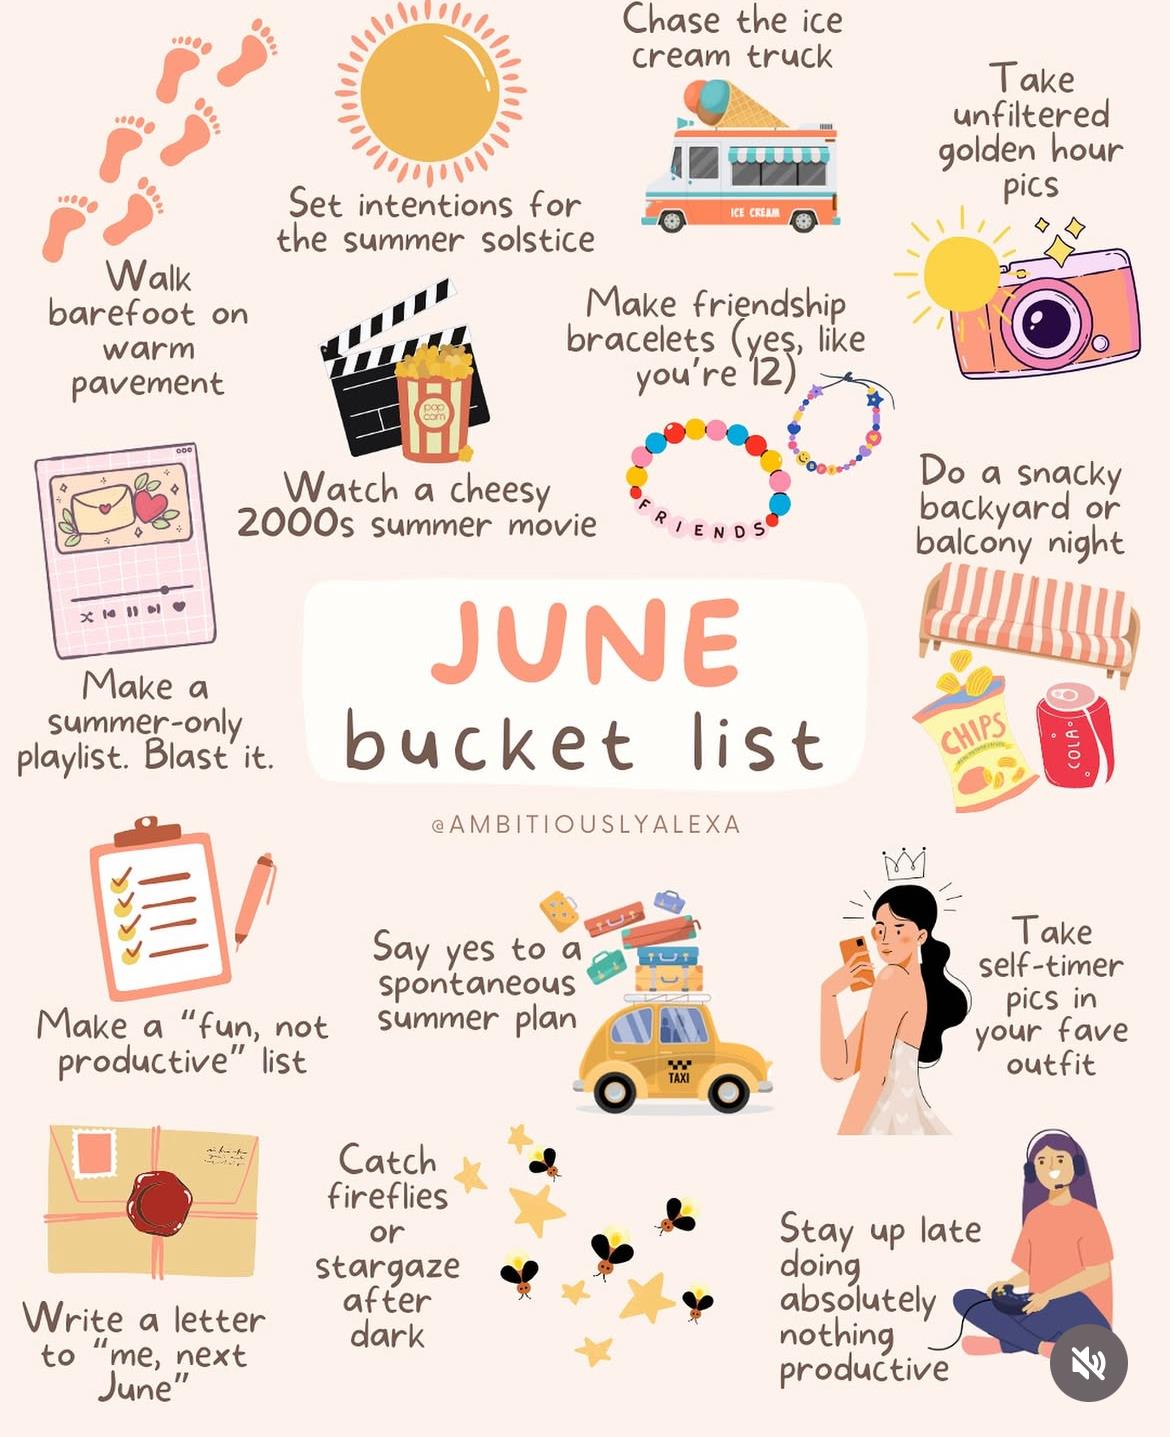 Chase the ice
cream truck
ICE CREAM
Take
unfiltered
golden hour
pics
Set intentions for
the summer solstice
Walk
barefoot on
warm
pavement
Make friendship
bracelets (yes, like
you're 12)
FRIENDS
pop
corn
Watch a cheesy
2000s summer movie
Do a snacky
backyard or
balcony night
CHIPS
COLA
Make a
summer-only
playlist. Blast it.
JUNE
bucket list
@AMBITIOUSLYALEXA
Make a "fun, not
productive" list
Say yes to a
spontaneous
summer plan
TAXI
Take
self-timer
pics in
your fave
outfit
Write a letter
to "me, next
June"
Catch
fireflies
or
stargaze
after
dark
Stay up late
doing
absolutely
nothing
productive